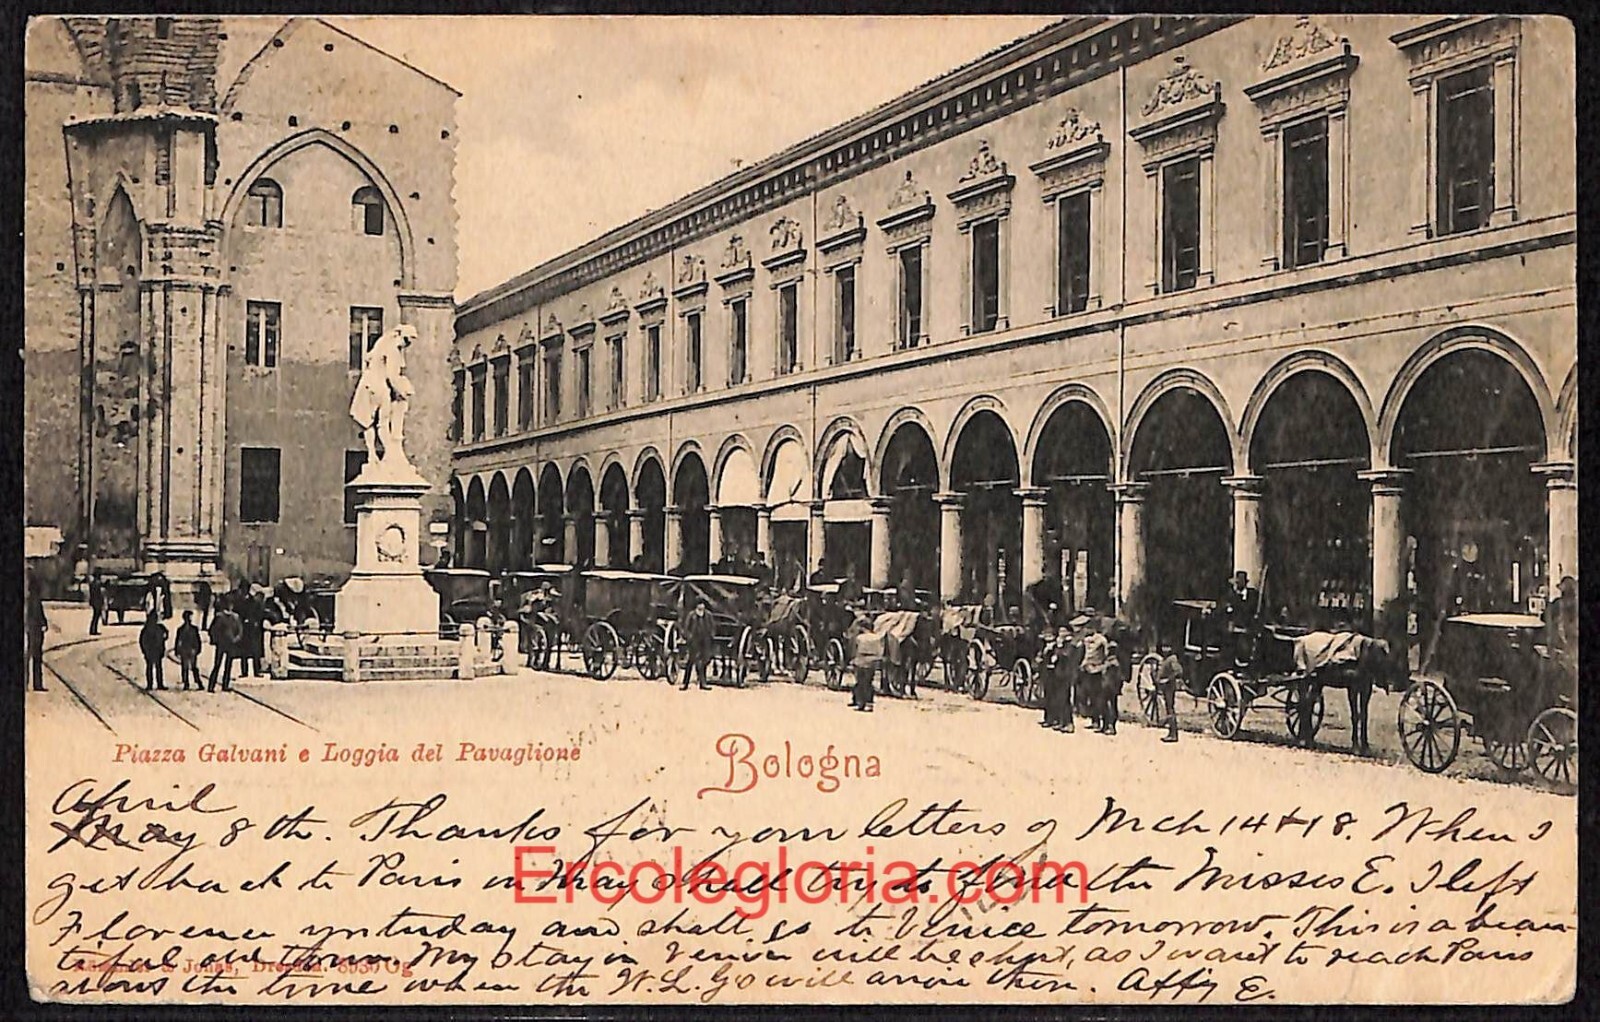 Piazza Galvani e Loggia del Pavaglione
Bologna
April
May 8th. Thanks for your letters of Mch 14 & 18. When I
get back to Paris in May shall try to find the Misses E. I left
Florence yesterday and shall go to Venice tomorrow. This is a beau-
tiful old town. My stay in Venice will be short, as I want to reach Paris
about the time when the W. L. Go will arrive there. Affy E.
& Jonas, Dresden. 8930 Og
Ercolegloria.com